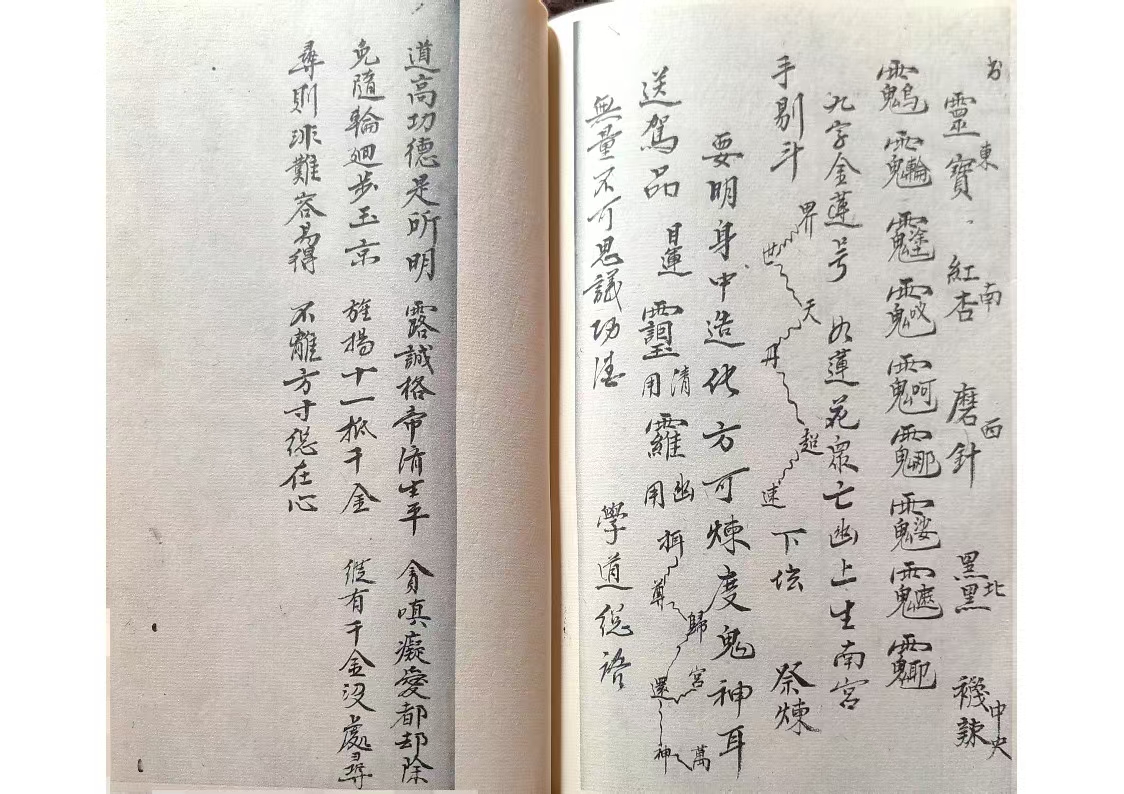 靈寶 東 紅杏 南 磨針 西 黑黑 北 襪辣 中央
九字金蓮号 如蓮花眾亡幽上生南宮
手剔斗 界 世 天 丹 超 速 下坛 祭煉
要明身中造化方可煉度鬼神耳
送駕品 用清 用幽 尊 歸 宮 還 神 萬
無量不可思議功德 學道總語
道高功德是所明 露誠格帝済生平 貪嗔癡愛都却除
免隨輪迴步玉京 旌揚十一抵千金 縱有千金没處尋
尋則非難容易得 不離方寸總在心